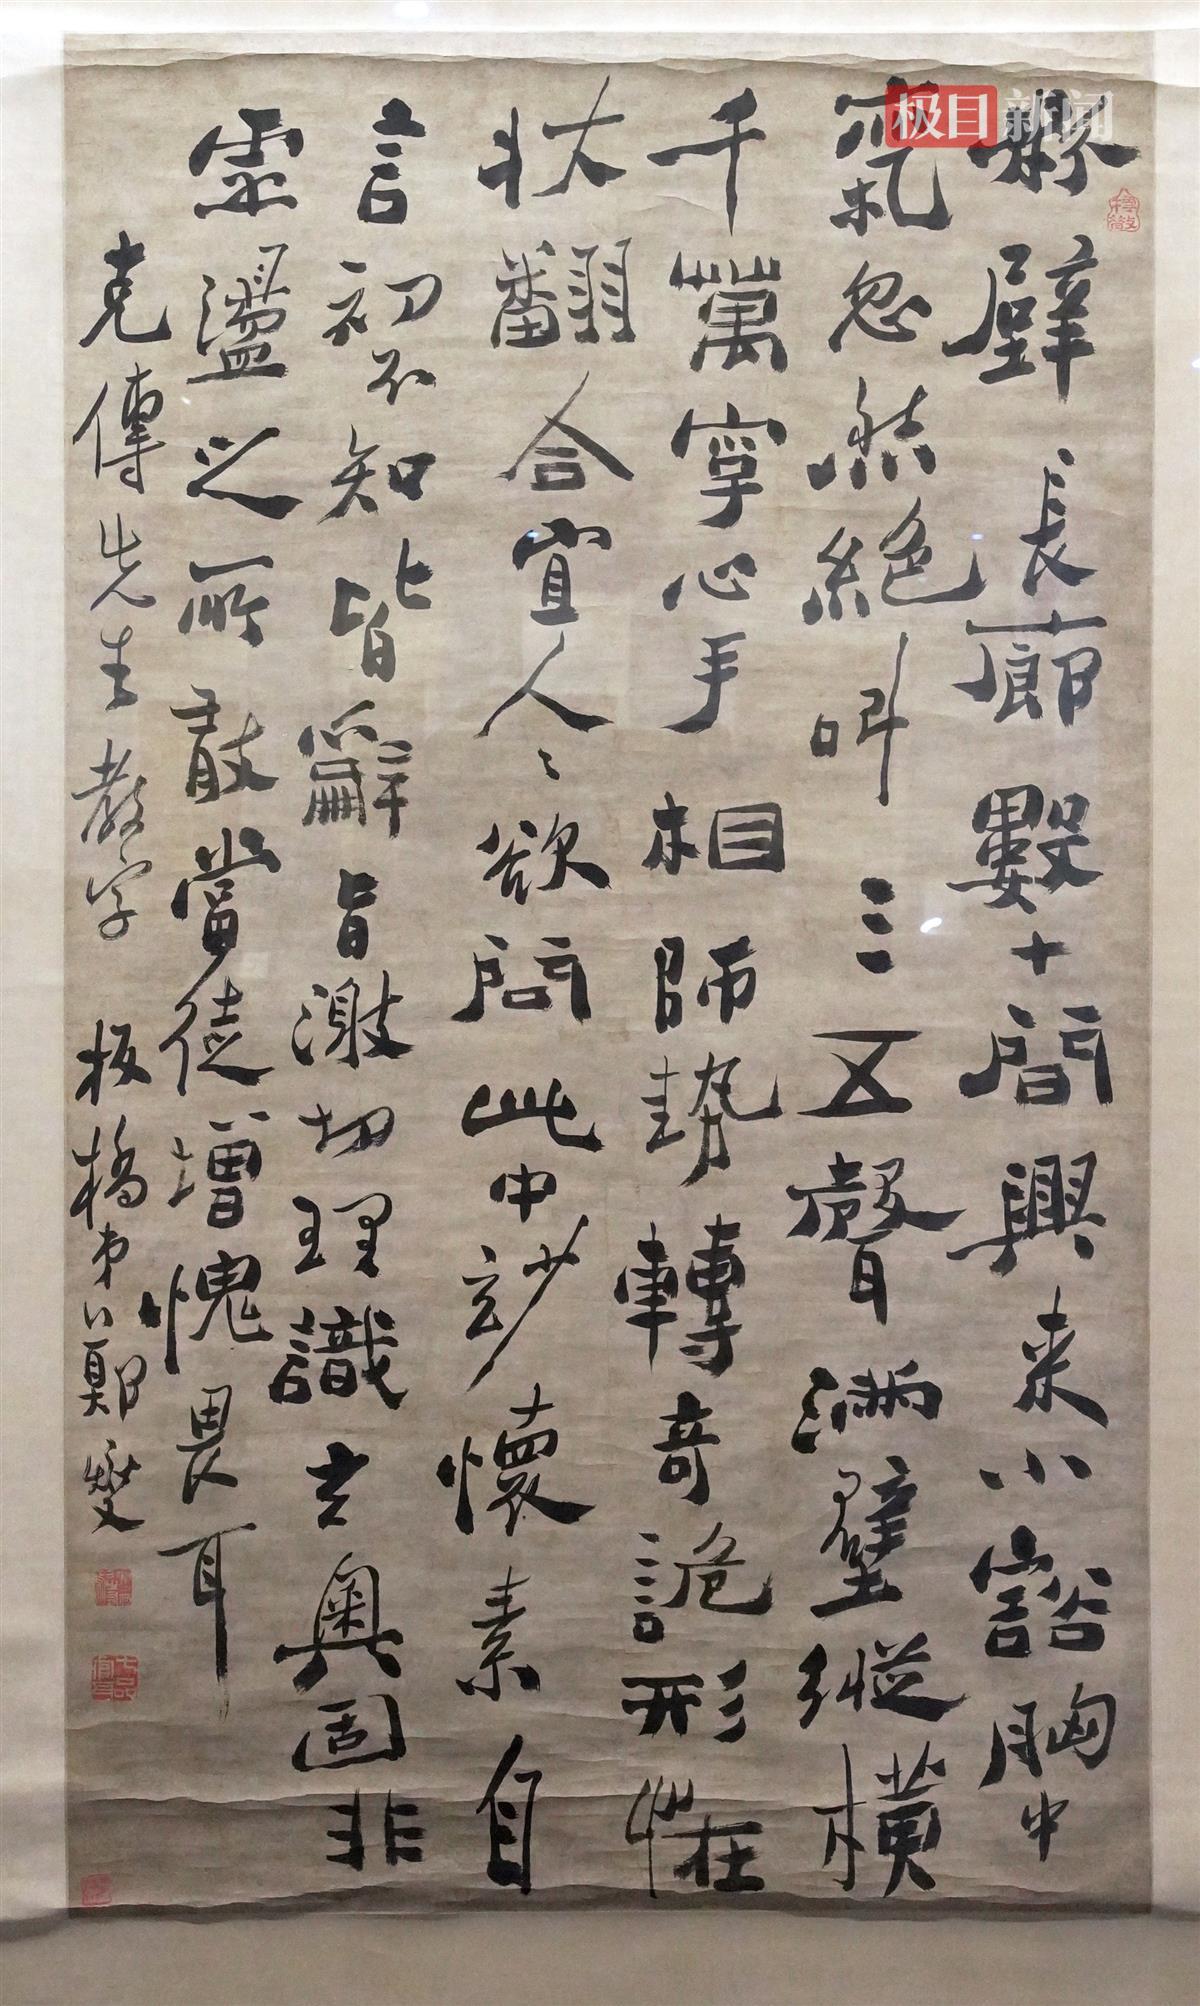 极目新闻
粉壁長廊數十間興来小豁胸中
氣忽然絕叫三五聲滿壁縱橫
千萬字心手相師勢轉奇詭形恠
狀翻合宜人〻欲問此中玅懷素自
言初不知皆辭旨激切理識玄奥固非
虛盪之所敢當徒增愧畏耳
克傳先生教字 板橋弟鄭燮